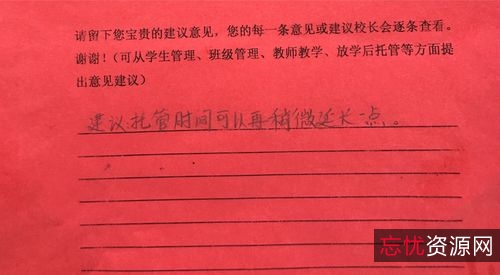 请留下您宝贵的建议意见，您的每一条意见或建议校长会逐条查看。
谢谢！（可从学生管理、班级管理、教师教学、放学后托管等方面提
出意见建议）
建议托管时间可以再稍微延长一点。
忘忧资源网